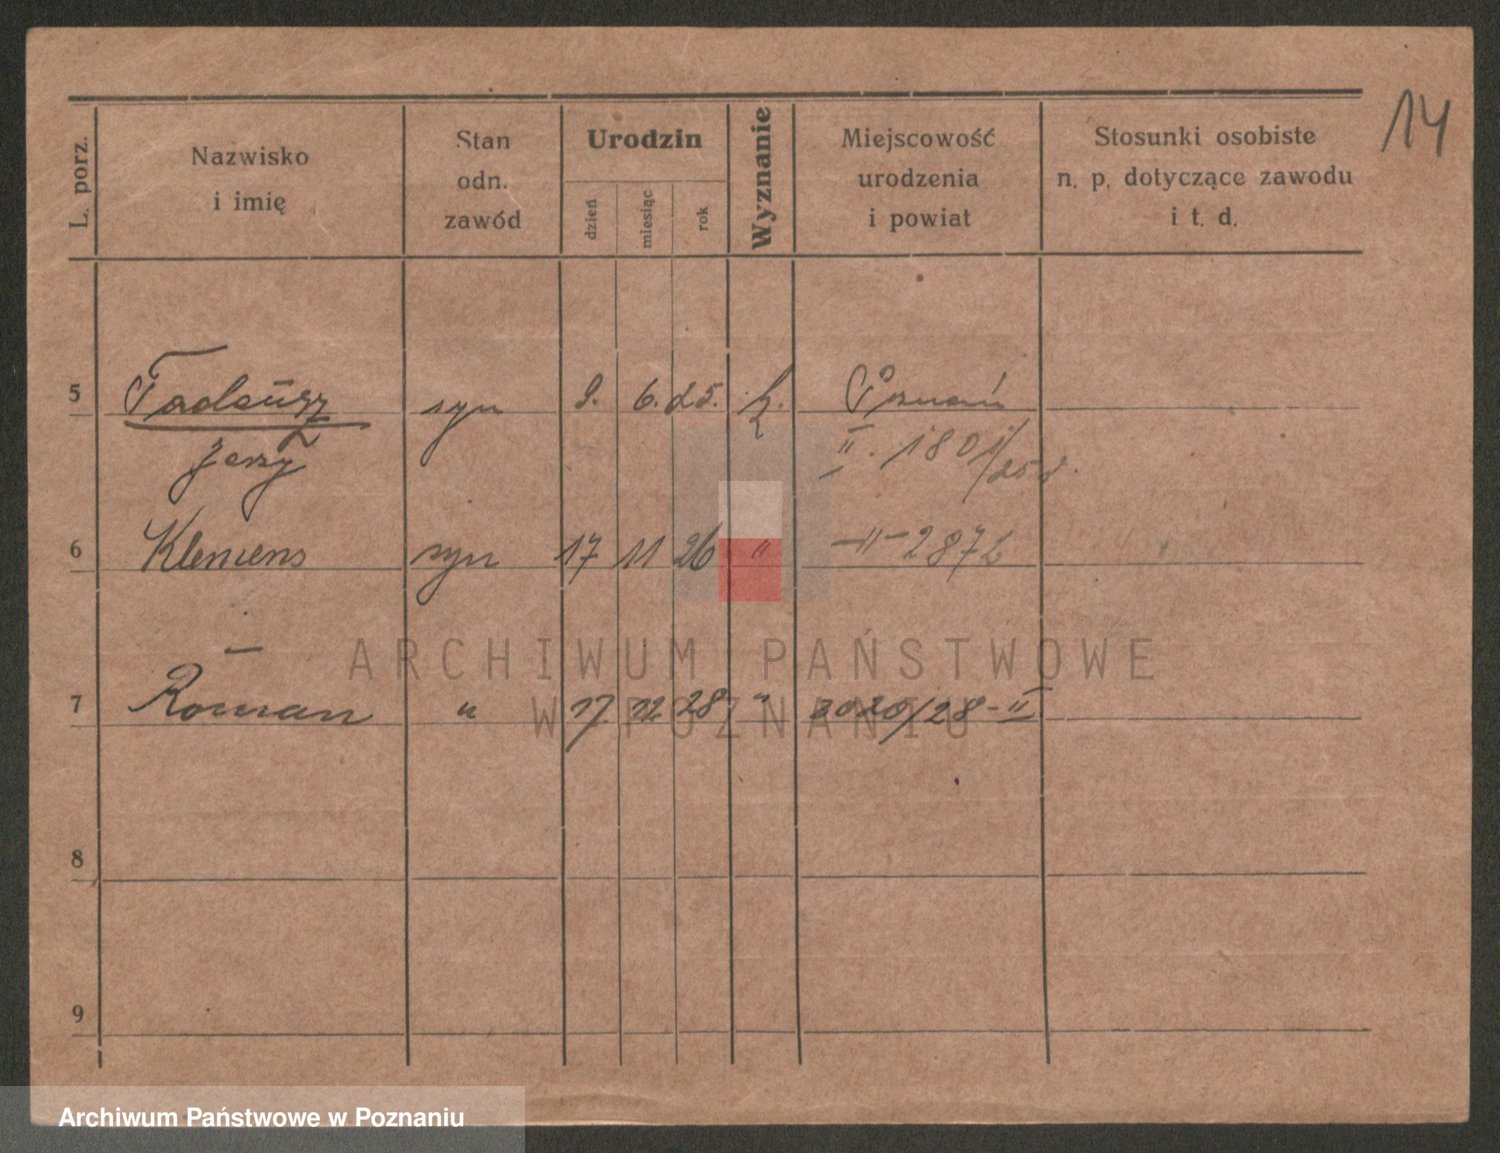 14
L. porz.
Nazwisko
i imię
Stan
odn.
zawód
Urodzin
dzień
miesiąc
rok
Wyznanie
Miejscowość
urodzenia
i powiat
Stosunki osobiste
n. p. dotyczące zawodu
i t. d.
5 Tadeusz syn 9. 6. 25. k. Poznań
Jerzy II. 1801/25
6 Klemens syn 17 11 26 " -"- 2872
7 Roman " 17 12 28 " 3020/28-II
8
9
ARCHIWUM PAŃSTWOWE
W POZNANIU
Archiwum Państwowe w Poznaniu